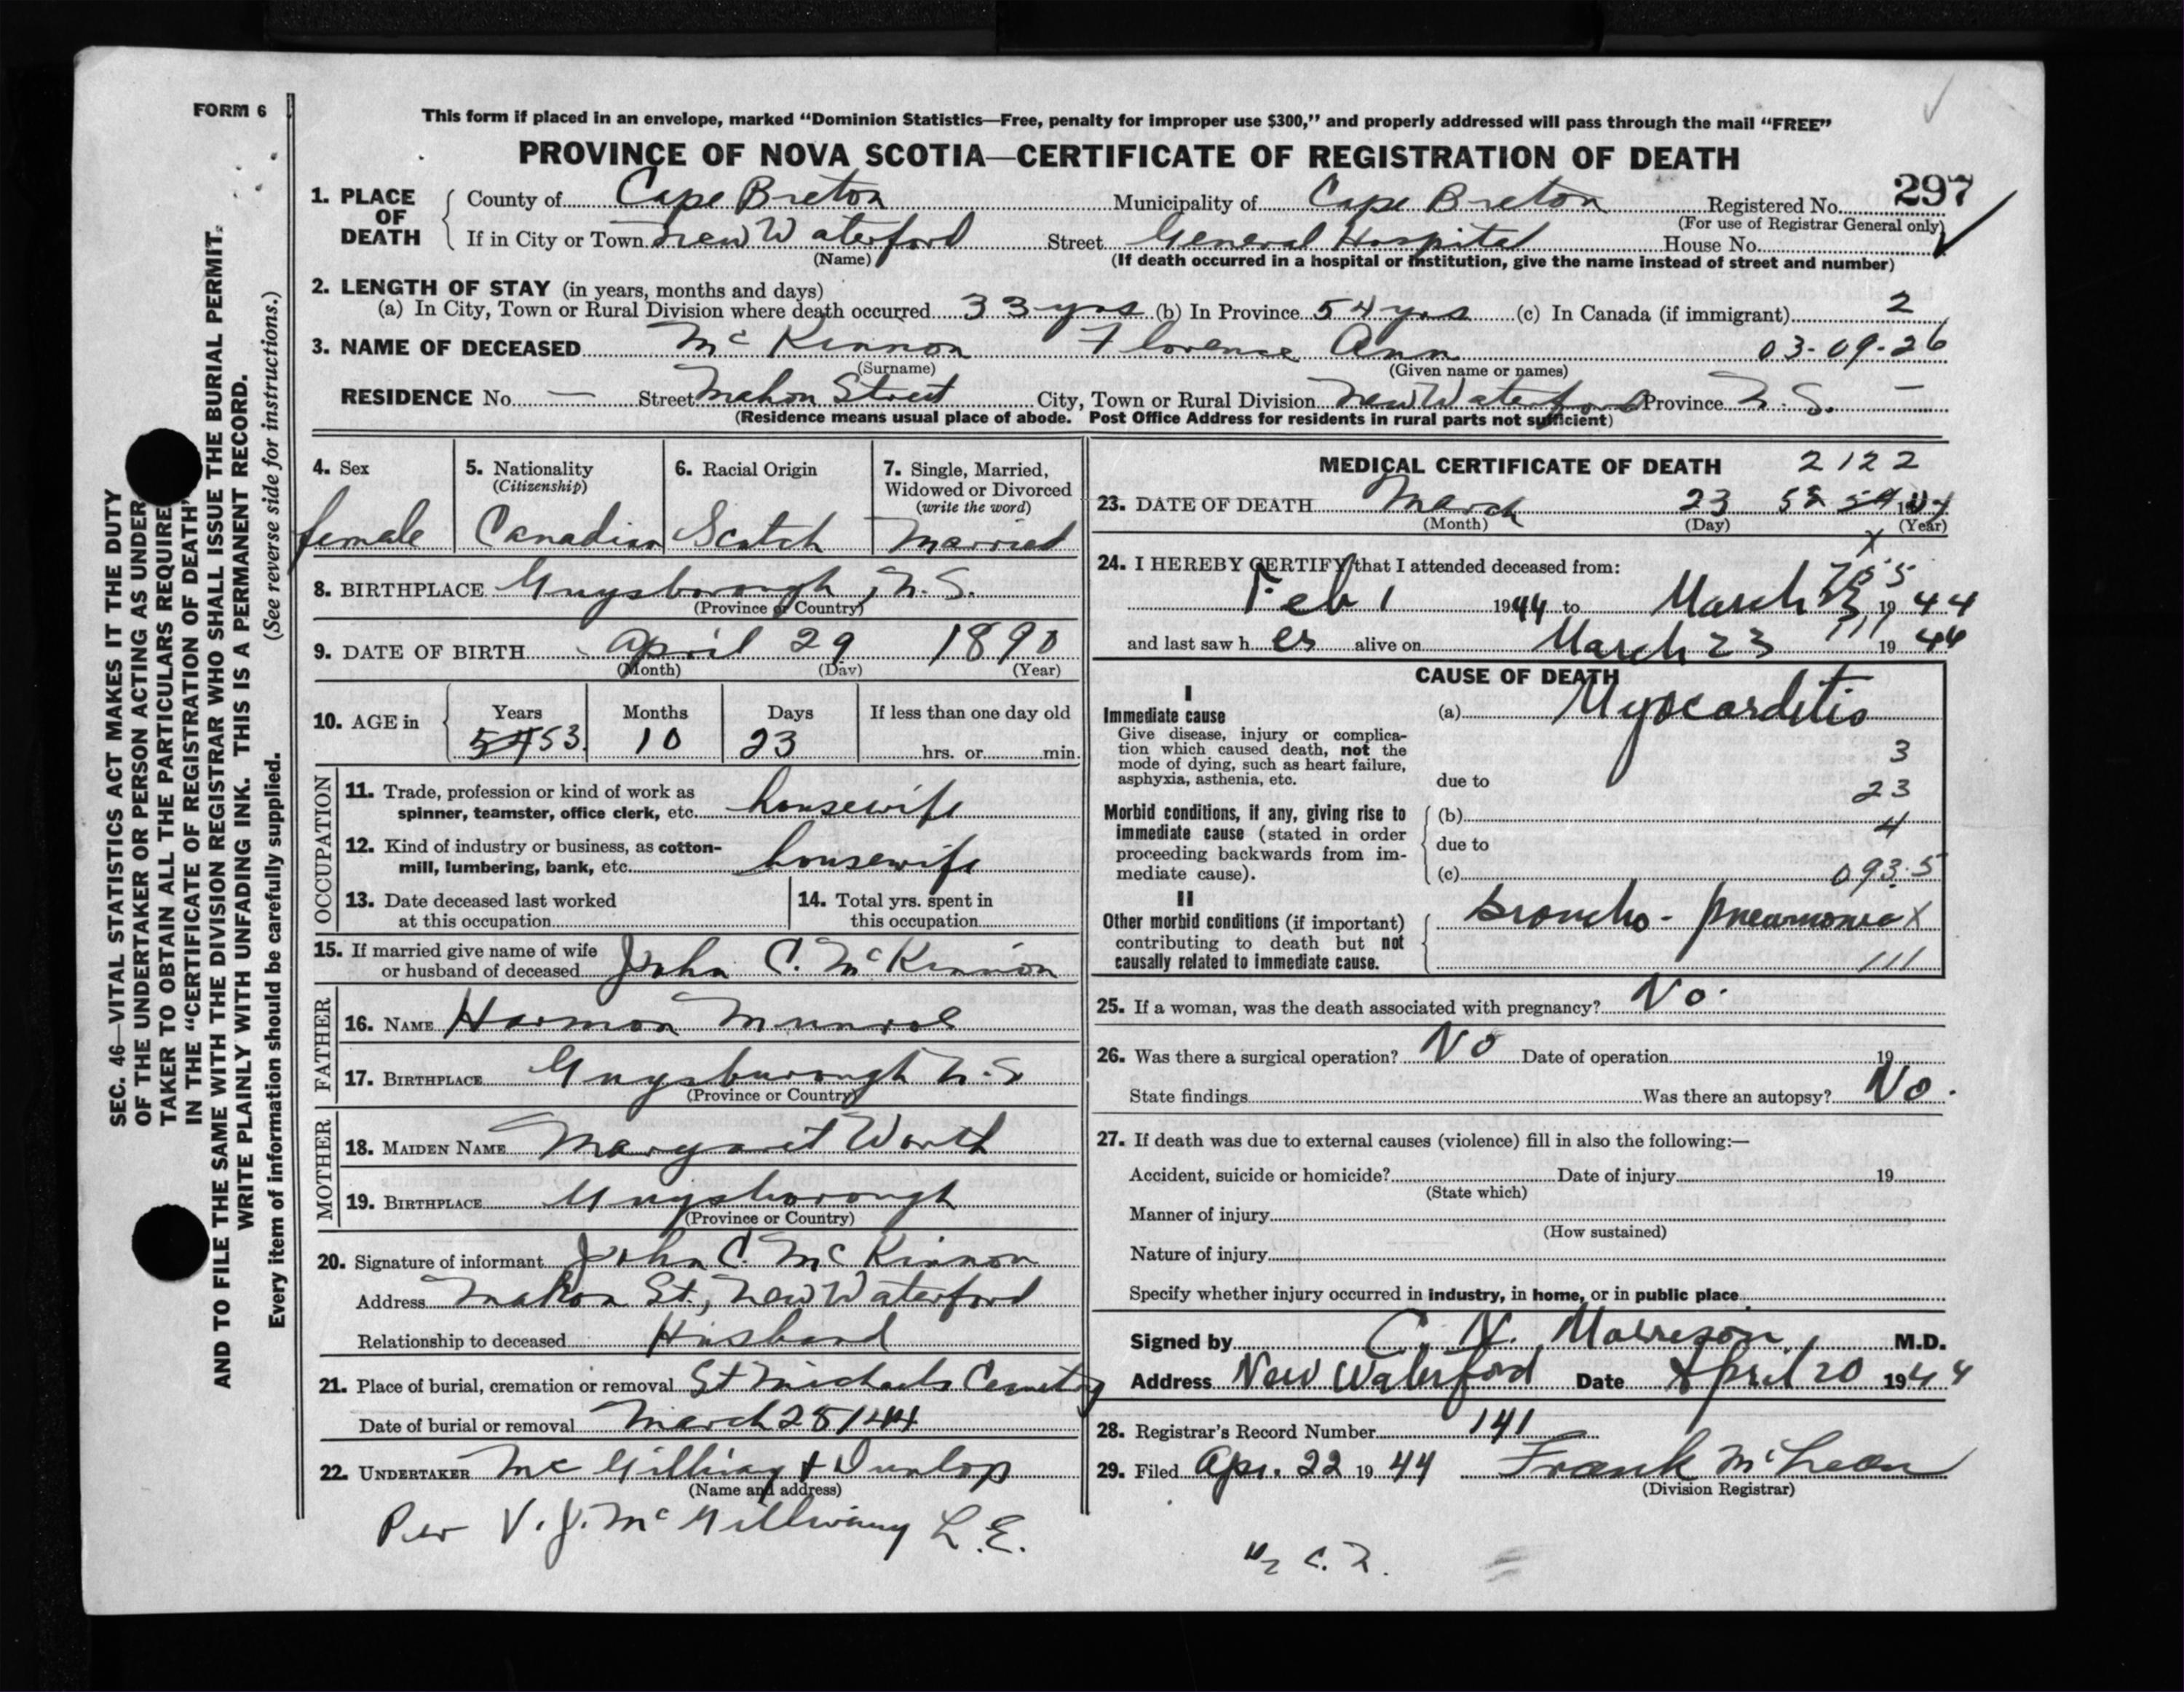 FORM 6
This form if placed in an envelope, marked "Dominion Statistics—Free, penalty for improper use $300," and properly addressed will pass through the mail "FREE"
PROVINCE OF NOVA SCOTIA—CERTIFICATE OF REGISTRATION OF DEATH
1. PLACE OF DEATH County of Cape Breton Municipality of Cape Breton Registered No. 297
(For use of Registrar General only)
If in City or Town New Waterford Street General Hospital House No.
(Name) (If death occurred in a hospital or institution, give the name instead of street and number)
2. LENGTH OF STAY (in years, months and days)
(a) In City, Town or Rural Division where death occurred 33 yrs (b) In Province 54 yrs (c) In Canada (if immigrant) 2
3. NAME OF DECEASED McKinnon Florence Ann 03-09-26
(Surname) (Given name or names)
RESIDENCE No. — Street Mahon Street City, Town or Rural Division New Waterford Province N.S. —
(Residence means usual place of abode. Post Office Address for residents in rural parts not sufficient)
SEC. 46—VITAL STATISTICS ACT MAKES IT THE DUTY
OF THE UNDERTAKER OR PERSON ACTING AS UNDER
TAKER TO OBTAIN ALL THE PARTICULARS REQUIRE
IN THE "CERTIFICATE OF REGISTRATION OF DEATH"
AND TO FILE THE SAME WITH THE DIVISION REGISTRAR WHO SHALL ISSUE THE BURIAL PERMIT.
WRITE PLAINLY WITH UNFADING INK. THIS IS A PERMANENT RECORD.
Every item of information should be carefully supplied. (See reverse side for instructions.)
4. Sex
female
5. Nationality
(Citizenship)
Canadian
6. Racial Origin
Scotch
7. Single, Married,
Widowed or Divorced
(write the word)
Married
8. BIRTHPLACE Guysborough, N.S.
(Province or Country)
9. DATE OF BIRTH April 29 1890
(Month) (Day) (Year)
10. AGE in Years Months Days If less than one day old
54 53 10 23 hrs. or min.
OCCUPATION
11. Trade, profession or kind of work as
spinner, teamster, office clerk, etc. housewife
12. Kind of industry or business, as cotton-
mill, lumbering, bank, etc. housewife
13. Date deceased last worked
at this occupation
14. Total yrs. spent in
this occupation
15. If married give name of wife
or husband of deceased John C. McKinnon
FATHER
16. NAME Harmon Munroe
17. BIRTHPLACE Guysburough N.S
(Province or Country)
MOTHER
18. MAIDEN NAME Margaret Worth
19. BIRTHPLACE Guysborough
(Province or Country)
20. Signature of informant John C. McKinnon
Address Mahon St., New Waterford
Relationship to deceased Husband
21. Place of burial, cremation or removal St Michaels Cemetry
Date of burial or removal March 25/44
22. UNDERTAKER McGillivray & Dunlop
(Name and address)
Per V. J. McGillivray L.E.
MEDICAL CERTIFICATE OF DEATH 2122
23. DATE OF DEATH March 23
(Month) (Day) (Year)
24. I HEREBY CERTIFY that I attended deceased from:
Feb 1 1944 to March 23 19 44
and last saw her alive on March 23 19 44
CAUSE OF DEATH
I
Immediate cause
Give disease, injury or complica-
tion which caused death, not the
mode of dying, such as heart failure,
asphyxia, asthenia, etc.
(a) Myocarditis
3
due to
23
Morbid conditions, if any, giving rise to
immediate cause (stated in order
proceeding backwards from im-
mediate cause).
(b)
4
due to
(c) 093.5
II
Other morbid conditions (if important)
contributing to death but not
causally related to immediate cause.
Broncho-pneumonia X
111
25. If a woman, was the death associated with pregnancy? No.
26. Was there a surgical operation? No Date of operation 19
State findings Was there an autopsy? No.
27. If death was due to external causes (violence) fill in also the following:—
Accident, suicide or homicide? Date of injury 19
(State which)
Manner of injury
(How sustained)
Nature of injury
Specify whether injury occurred in industry, in home, or in public place
Signed by C. N. Morrison, M.D.
Address New Waterford Date April 20 1944
28. Registrar's Record Number 141
29. Filed Apr. 22 19 44 Frank McLean
(Division Registrar)